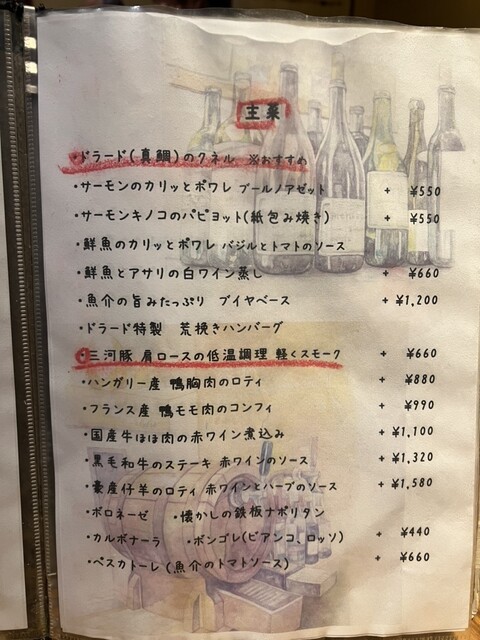 主菜
・ドラード(真鯛)のクネル ※おすすめ
・サーモンのカリッとポワレ ブールノアゼット + ¥550
・サーモンキノコのパピヨット(紙包み焼き) + ¥550
・鮮魚のカリッとポワレ バジルとトマトのソース
・鮮魚とアサリの白ワイン蒸し + ¥660
・魚介の旨みたっぷり ブイヤベース + ¥1,200
・ドラード特製 荒挽きハンバーグ
・三河豚 肩ロースの低温調理 軽くスモーク + ¥660
・ハンガリー産 鴨胸肉のロティ + ¥880
・フランス産 鴨モモ肉のコンフィ + ¥990
・国産牛ほほ肉の赤ワイン煮込み + ¥1,100
・黒毛和牛のステーキ 赤ワインのソース + ¥1,320
・豪産仔羊のロティ 赤ワインとハーブのソース + ¥1,580
・ボロネーゼ ・懐かしの鉄板ナポリタン
・カルボナーラ ・ボンゴレ(ビアンコ、ロッソ) + ¥440
・ペスカトーレ(魚介のトマトソース) + ¥660